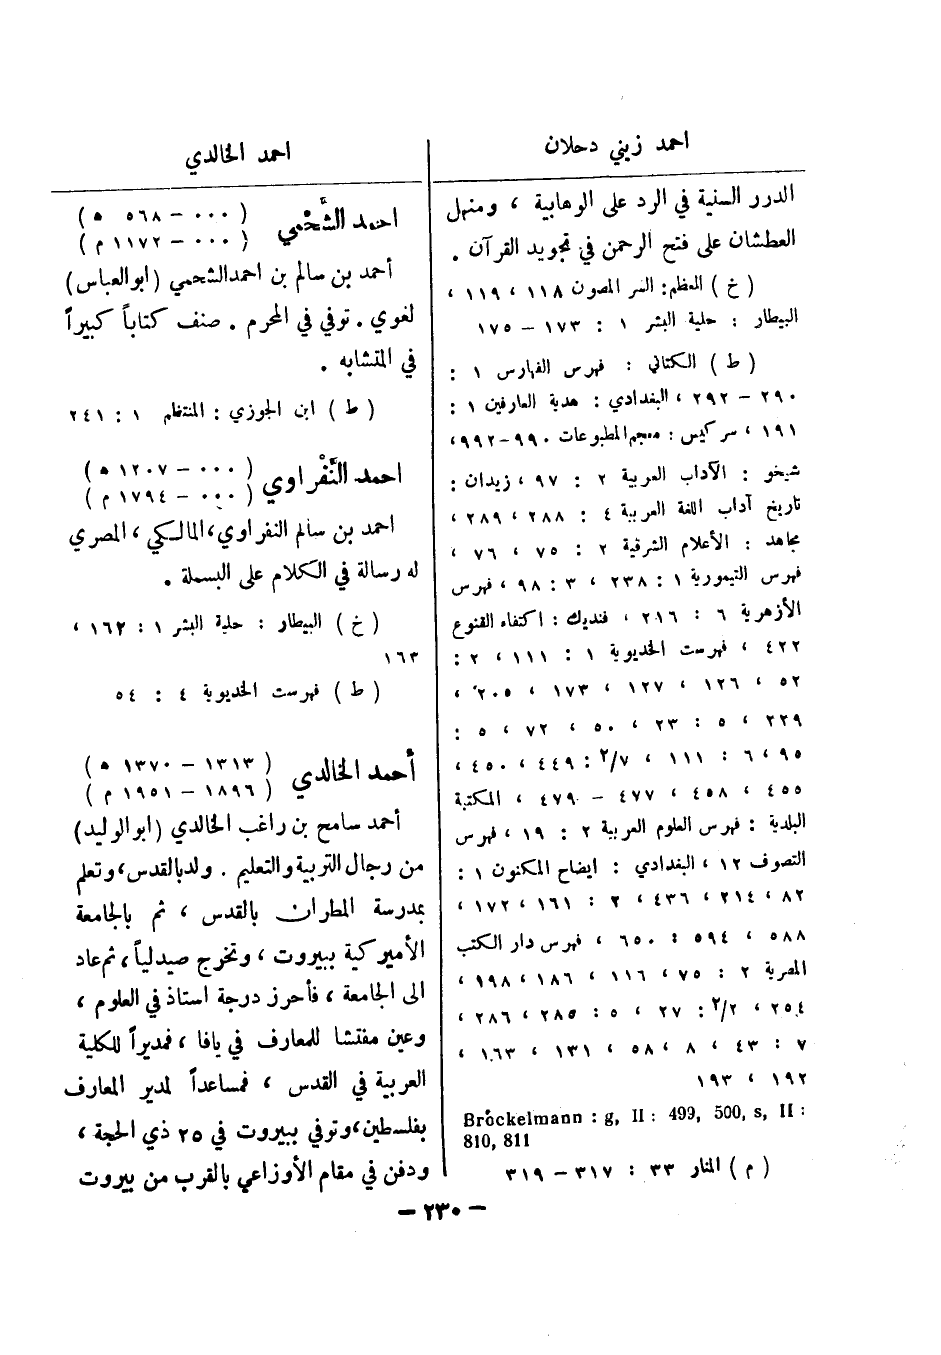 احمد زيني دحلان
الدرر السنية في الرد على الوهابية ، ومنهل
العطشان على فتح الرحمن في تجويد القرآن .
( خ ) العظم: السر المصون ١١٨ ، ١١٩ ،
البيطار : حلية البشر ١ : ١٧٣ – ١٧٥
( ط ) الكتاني : فهرس الفهارس ١ :
٢٩٠ – ٢٩٢ ، البغدادي : هدية العارفين ١ :
١٩١ ، سركيس : معجم المطبوعات ٩٩٠–٩٩٢،
شيخو : الآداب العربية ٢ : ٩٧ ، زيدان :
تاريخ آداب اللغة العربية ٤ : ٢٨٨ ، ٢٨٩ ،
مجاهد : الأعلام الشرقية ٢ : ٧٥ ، ٧٦ ،
فهرس التيمورية ١ : ٢٣٨ ، ٣ : ٩٨ ، فهرس
الأزهرية ٦ : ٢١٦ ، فنديك : اكتفاء القنوع
٤٢٢ ، فهرست الخديوية ١ : ١١١ ، ٢ :
٥٢ ، ١٢٦ ، ١٢٧ ، ١٧٣ ، ٢٠٥ ،
٢٢٩ ، ٥ : ٢٣ ، ٥٠ ، ٧٢ ، ٥ :
٩٥ ، ٦ : ١١١ ، ٢/٧ : ٤٤٩ ، ٤٥٠ ،
٤٥٥ ، ٤٥٨ ، ٤٧٧ – ٤٧٩ ، المكتبة
البلدية : فهرس العلوم العربية ٢ : ١٩ ، فهرس
التصوف ١٢ ، البغدادي : ايضاح المكنون ١ :
٨٢ ، ٢١٤ ، ٤٣٦ ، ٢ : ١٦١ ، ١٧٢ ،
٥٨٨ ، ٥٩٤ : ٦٥٠ ، فهرس دار الكتب
المصرية ٢ : ٧٥ ، ١١٦ ، ١٨٦ ، ١٩٨ ،
٢٥٤ ، ٢/٢ : ٢٧ ، ٥ : ٢٨٥ ، ٢٨٦ ،
٧ : ٤٣ ، ٨ ، ٥٨ ، ١٣١ ، ١٦٣ ،
١٩٢ ، ١٩٣
Brockelmann : g, II : 499, 500, s, II :
810, 811
( م ) المنار ٣٣ : ٣١٧ – ٣١٩
احمد الخالدي
احمد الشَّحْمي ( ٠٠٠ – ٥٦٨ ه )
( ٠٠٠ – ١١٧٢ م )
أحمد بن سالم بن احمد الشحمي (ابو العباس)
لغوي . توفي في المحرم . صنف كتاباً كبيراً
في المتشابه .
( ط ) ابن الجوزي : المنتظم ١ : ٢٤١
احمد النَّفْراوي ( ٠٠٠ – ١٢٠٧ ه )
( ٠٠٠ – ١٧٩٤ م )
احمد بن سالم النفراوي، المالكي ، المصري
له رسالة في الكلام على البسملة .
( خ ) البيطار : حلية البشر ١ : ١٦٢ ،
١٦٣
( ط ) فهرست الخديوية ٤ : ٥٤
أحمد الخالدي ( ١٣١٣ – ١٣٧٠ ه )
( ١٨٩٦ – ١٩٥١ م )
أحمد سامح بن راغب الخالدي (ابو الوليد)
من رجال التربية والتعليم . ولد بالقدس، وتعلم
بمدرسة المطران بالقدس ، ثم بالجامعة
الأميركية ببيروت ، وتخرج صيدلياً ، ثم عاد
الى الجامعة ، فأحرز درجة استاذ في العلوم ،
وعين مفتشا للمعارف في يافا ، فمديراً للكلية
العربية في القدس ، فمساعداً لمدير المعارف
بفلسطين ، وتوفي ببيروت في ٢٥ ذي الحجة ،
ودفن في مقام الأوزاعي بالقرب من بيروت
– ٢٣٠ –